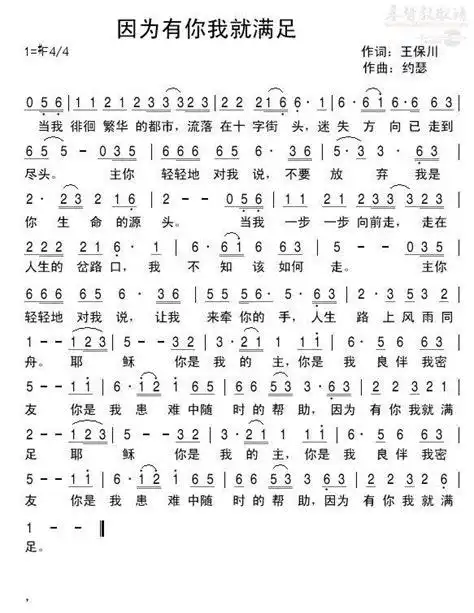 因为有你我就满足
4/4
作词：王保川
作曲：约瑟
0 5 6 | 1 1 2 1 2 1 3 3 3 3 2 3 | 2 2 2 1 6 6 · 1 | 6 · 6 1 6 · 6 3
当我 徘徊 繁华 的都市，流落 在十 字街 头，迷 失 方 向 已 走到
6 5 5 - 0 3 5 | 6 6 6 6 5 3 · 3 6 | 5 · 3 3 · 6 3
尽头。 主你 轻轻地 对我 说，不要 放 弃 我是
2 · 2 3 2 1 6 | 2 - - 0 5 6 | 1 1 1 1 2 1 3 · 2 3
你 生 命 的源 头。 当我 一步 一步 向前 走，走在
2 2 2 2 2 1 6 · 1 | 6 · 6 1 6 6 3 | 5 - - 0 3 5
人生的 岔路 口，我 不 知 该 如何 走。 主你
6 6 6 6 5 3 · 3 6 | 5 6 5 3 3 · 6 3 | 2 · 1 2 2 3 2 6
轻轻地 对我 说，让我 来牵 你的 手，人生 路 上 风 雨 同
1 - - 1 2 3 | 5 · 3 2 3 2 | 3 · 2 1 1 1 | 6 · 6 3 6 3
舟。 耶 稣 你是 我 的 主，你是 我 良 伴 我密
5 - - 1 1 | 6 · 1 2 1 6 5 | 6 5 5 3 3 · 6 3 | 2 · 2 3 2 1 6
友 你是 我 患 难 中随 时 的 帮 助，因为 有 你 我就 满
2 - - 1 2 3 | 5 · 3 2 3 2 | 3 · 2 1 1 1 | 6 · 6 3 6 3
足 耶 稣 你是 我 的 主，你是 我 良 伴 我密
5 - - 1 1 | 6 · 1 2 1 6 5 | 6 5 5 3 3 · 6 3 | 2 · 2 3 2 1 6
友 你是 我 患 难 中随 时 的 帮 助，因为 有 你 我就 满
1 - - ‖
足。